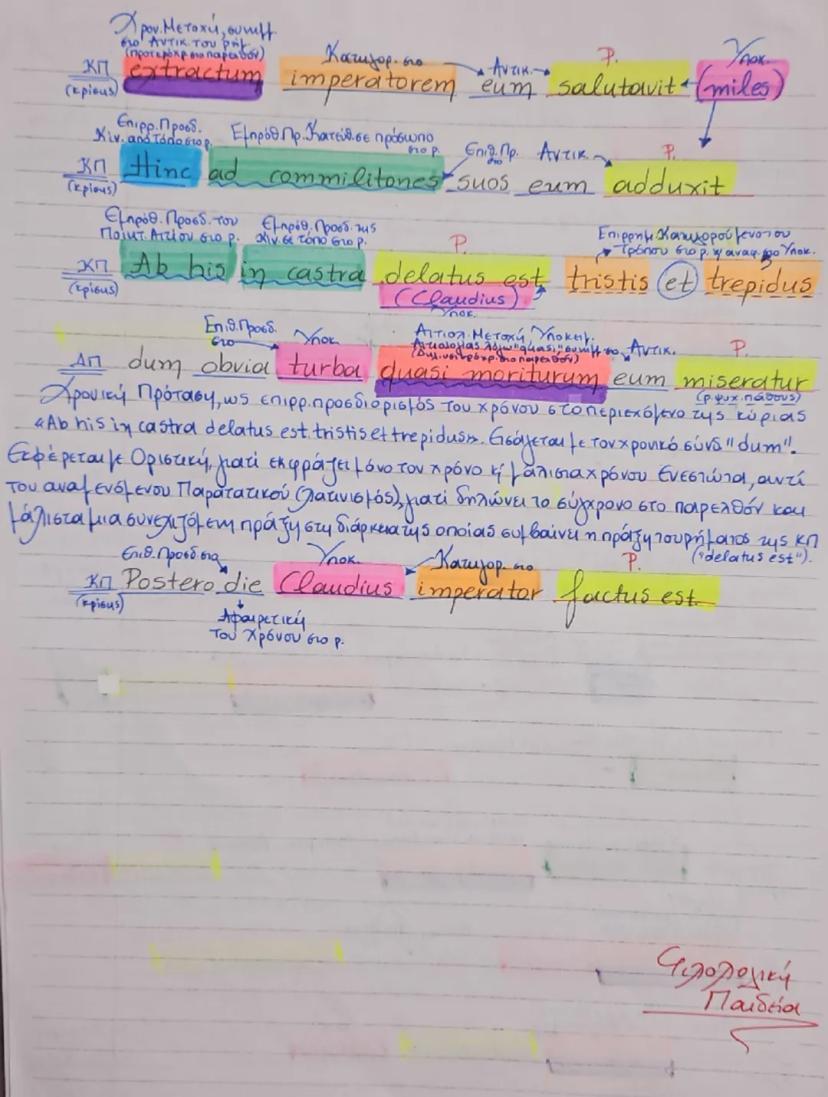 Χρον. Μετοχή, συνημμ
στο Αντικ. του ρημ
(προτερόχρ. στο παρελθόν) Κατηγορ. στο Αντικ. Ρ. Υποκ.
ΚΠ extractum imperatorem eum salutavit (miles)
(κρίσης)
Επιρρ. Προσδ. Εμπρόθ. Πρ. Κατεύθ. σε πρόσωπο
Κίν. από τόπο στο ρ. στο ρ. Επιθ. Πρ. στο Αντικ. Ρ.
ΚΠ Hinc ad commilitones suos eum adduxit
(κρίσης)
Εμπρόθ. Προσδ. του Εμπρόθ. Προσδ. της Επιρρημ. Κατηγορούμενο του
Ποιητ. Αιτίου στο ρ. Κίν. σε τόπο στο ρ. Ρ. Τρόπου στο ρ. κ αναφ. στο Υποκ.
ΚΠ Ab his in castra delatus est tristis et trepidus
(κρίσης) (Claudius)
Υποκ.
Επιθ. Προσδ. Αιτιολ. Μετοχή, Υποκειμ.
στο Υποκ. Αντικ. Ρ.
ΔΠ dum obvia turba quasi moriturum eum miseratur
(ρ. ψυχ. πάθους)
Χρονική Πρόταση, ως επιρρ. προσδιορισμός του χρόνου στο περιεχόμενο της κύριας
«Ab his in castra delatus est tristis et trepidus». Εισάγεται με τον χρονικό σύνδ "dum".
Εκφέρεται με Οριστική, γιατί εκφράζει μόνο τον χρόνο κ μάλιστα χρόνου Ενεστώτα, αντί
του αναμενόμενου Παρατατικού (λατινισμός), γιατί δηλώνει το σύγχρονο στο παρελθόν και
μάλιστα μια συνεχιζόμενη πράξη στη διάρκεια της οποίας συμβαίνει η πράξη του ρήματος της ΚΠ
("delatus est").
Επιθ. Προσδ στο Υποκ. Κατηγορ. στο Ρ.
ΚΠ Postero die Claudius imperator factus est.
(κρίσης)
Αφαιρετική
του χρόνου στο ρ.
Φιλολογική
Παιδεία